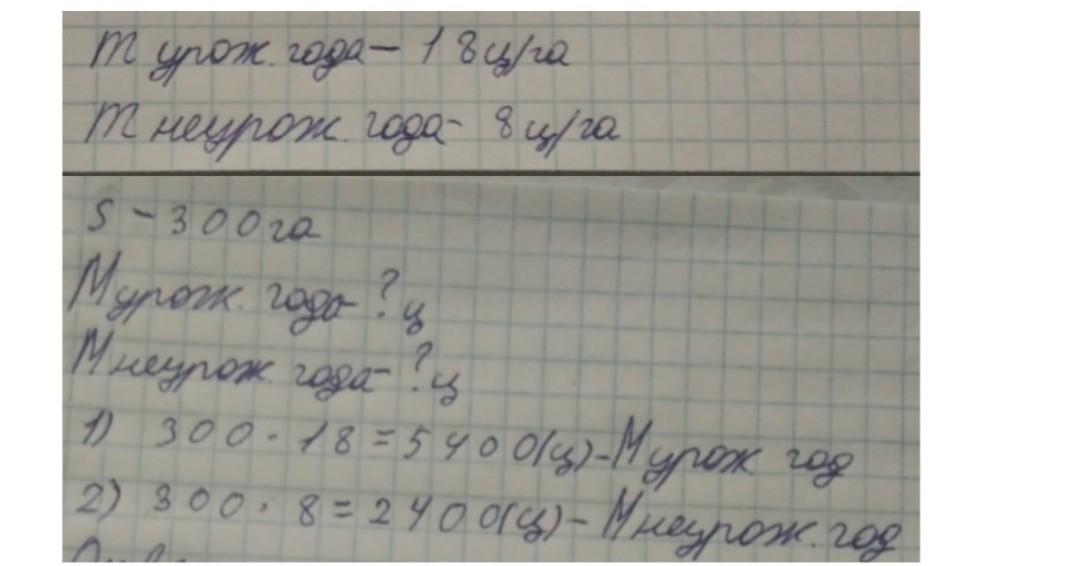 m урож. года - 18ц/га
m неурож. года - 8ц/га
S - 300га
М урож. года - ? ц
М неурож. года - ? ц
1) 300 · 18 = 5400(ц) - М урож. год
2) 300 · 8 = 2400(ц) - М неурож. год